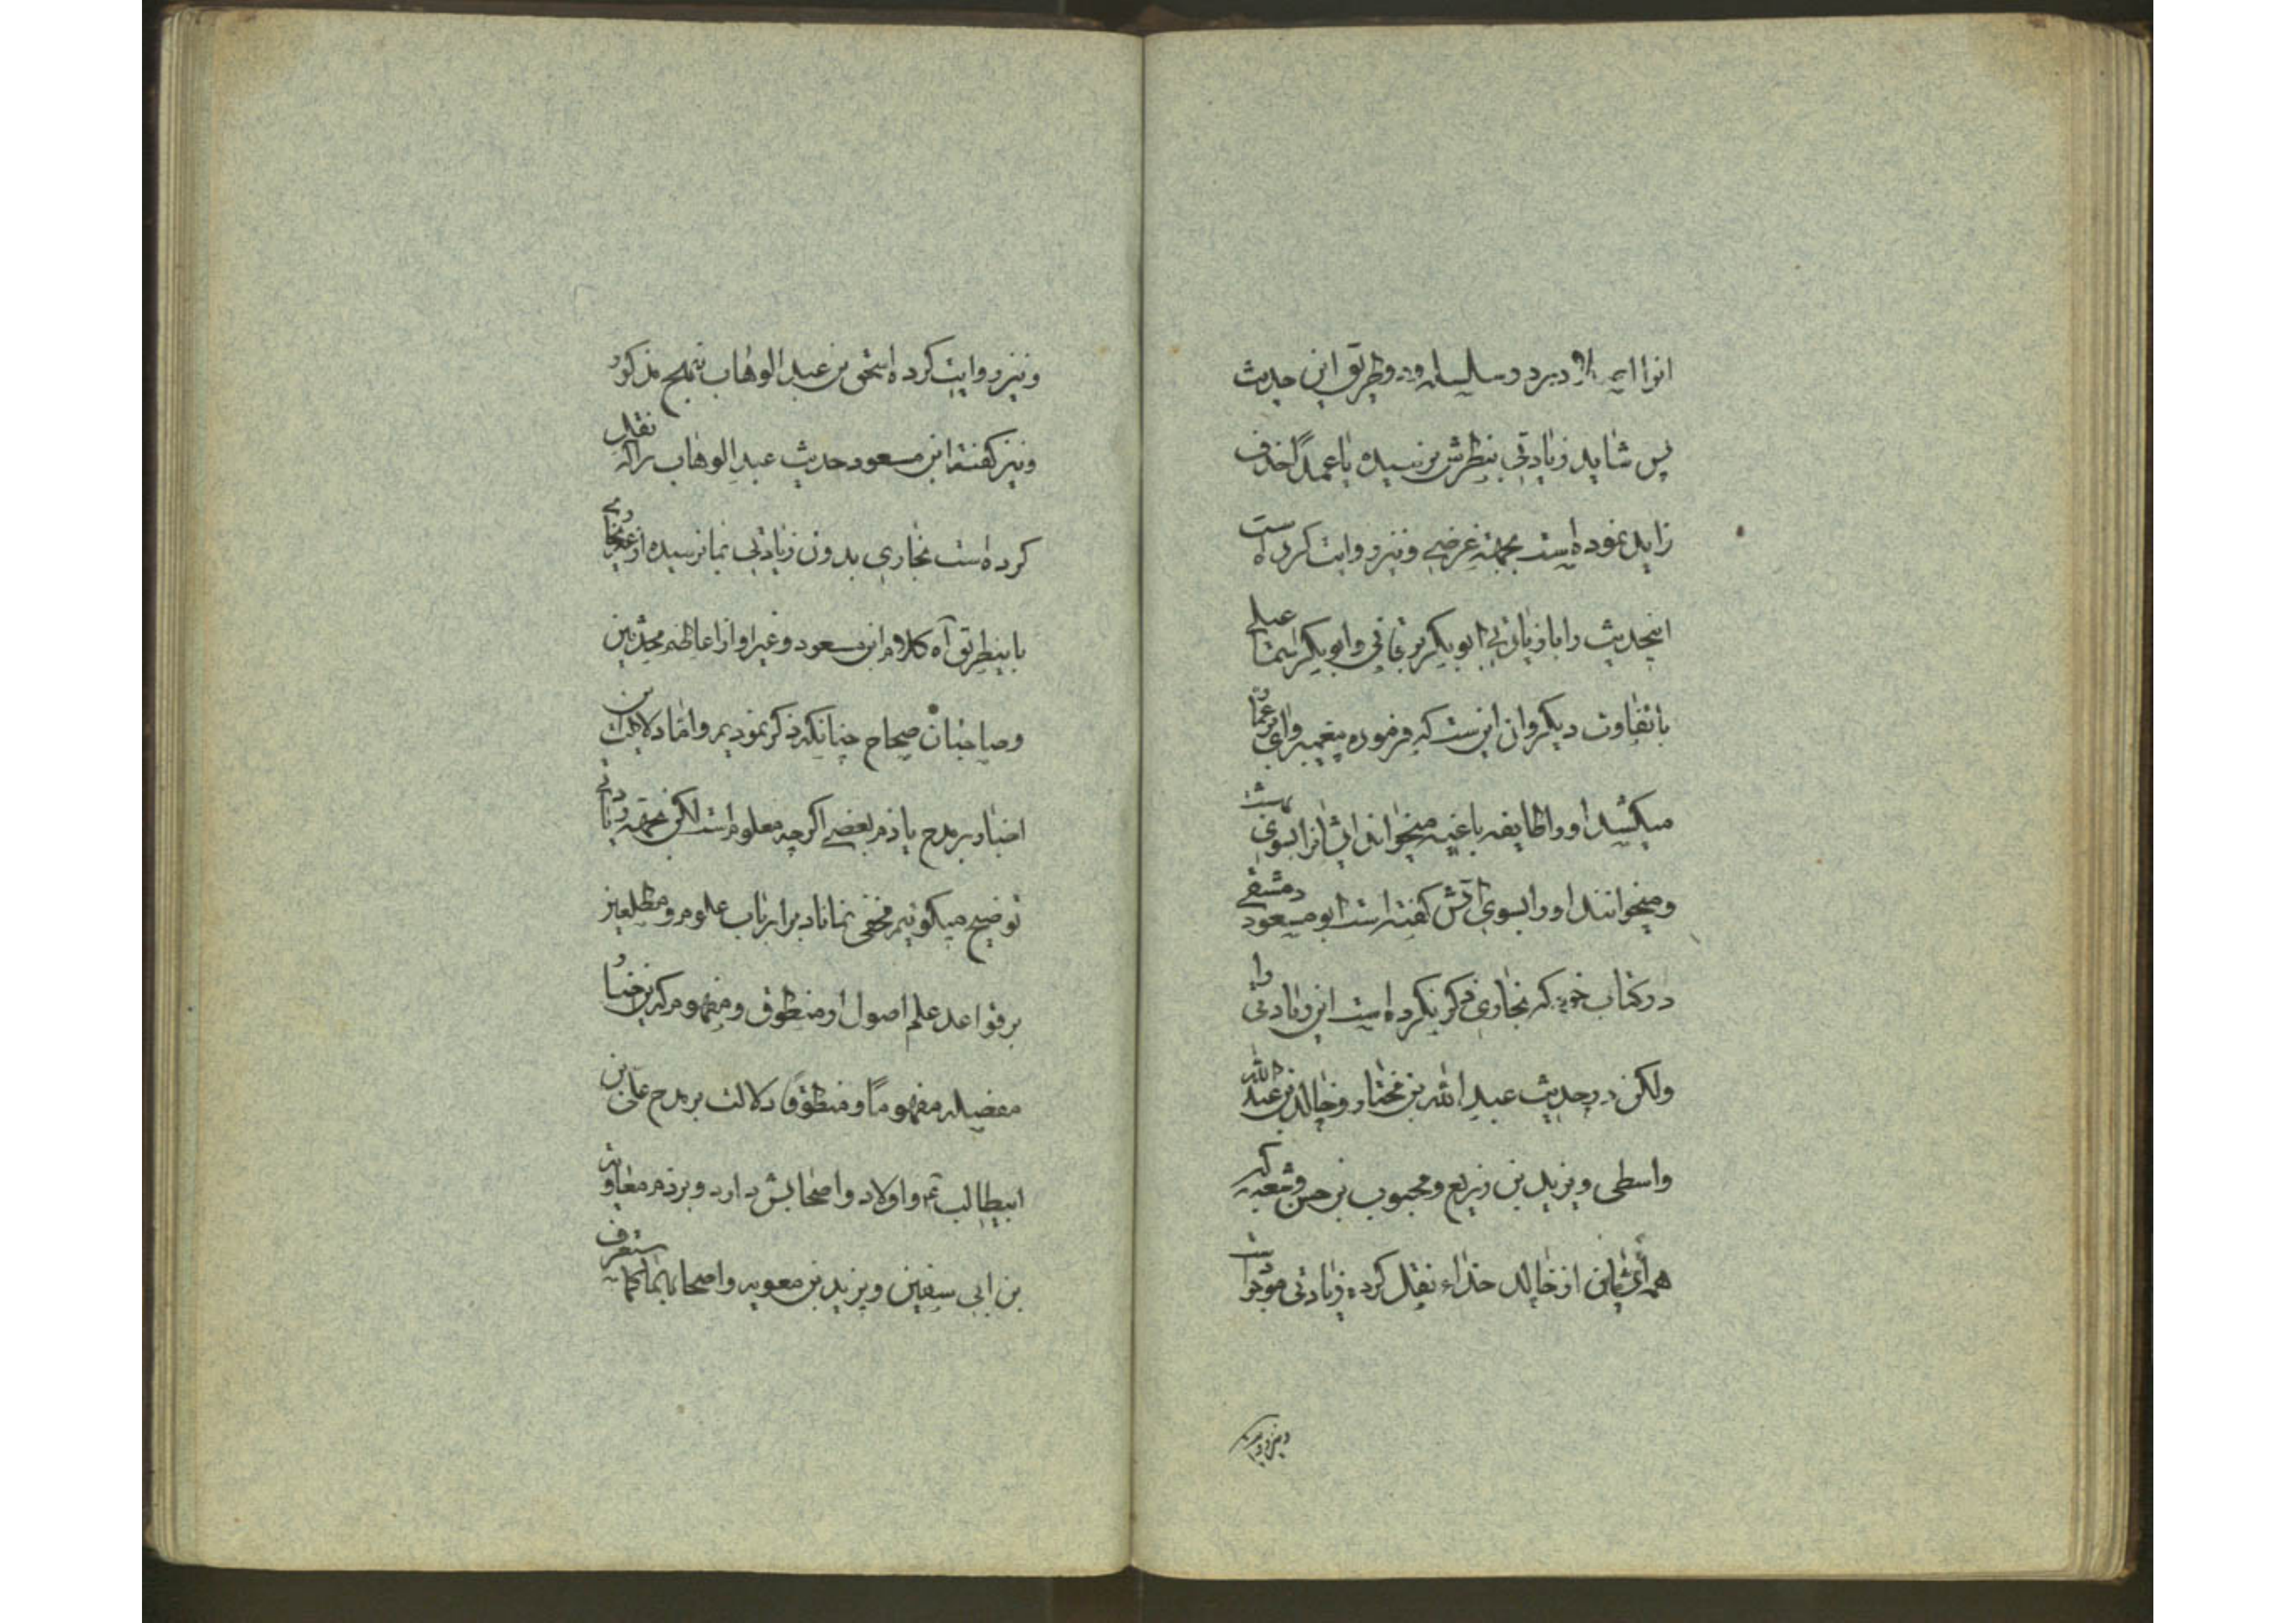 پس شاید زیادتی بنظرش نرسیده یا عمداً حذف
زاید نموده است بجهته غرضی و نیز روایت کرده است
اینحدیث را با زیادتی ابوبکر برقانی و ابوبکر اسمعیلی
باتفاوت دیگر و ان اینست که فرموده پیغمبر وای بر عمار
میکشد او را طایفه باغیه میخواند ایشانرا بسوی بهشت
و میخوانند او را بسوی اتش گفته است ابو مسعود دمشقی
در کتاب خود که بخاری ذکر نکرده است این زیادتی را
ولکن در حدیث عبد الله بن مختار و خالد بن عبد الله
واسطی و یزید بن زریع و محبوب بن حسن و شعبه که
همه ایشان از خالد حذاء نقل کرده زیادتی موجود است
و نیز روایت کرده
و نیز روایت کرده اسحق بن عبد الوهاب بنهج مذکور
و نیز گفته ابن مسعود حدیث عبد الوهاب را که نقل
کرده است بخاری بدون زیادتی بما نرسیده از غیر بخاری
باینطریق آه کلام ابن مسعود و غیر او از اعاظم محدثین
و صاحبان صحاح چنانکه ذکر نمودیم و اما دلالت این
اخبار بر مدح یا ذم بعضی اگرچه معلوم است لکن بجهته زیادتی
توضیح میگوئیم مخفی نماناد بر ارباب علوم و مطلعین
بر قواعد علم اصول از منطوق و مفهوم که این اخبار
مفصله مفهوماً و منطوقاً دلالت بر مدح علی بن
ابیطالب ع و اولاد و اصحابش دارد و بر ذم معاویه
بن ابی سفین و یزید بن معویه و اصحابهما کما ستعرف